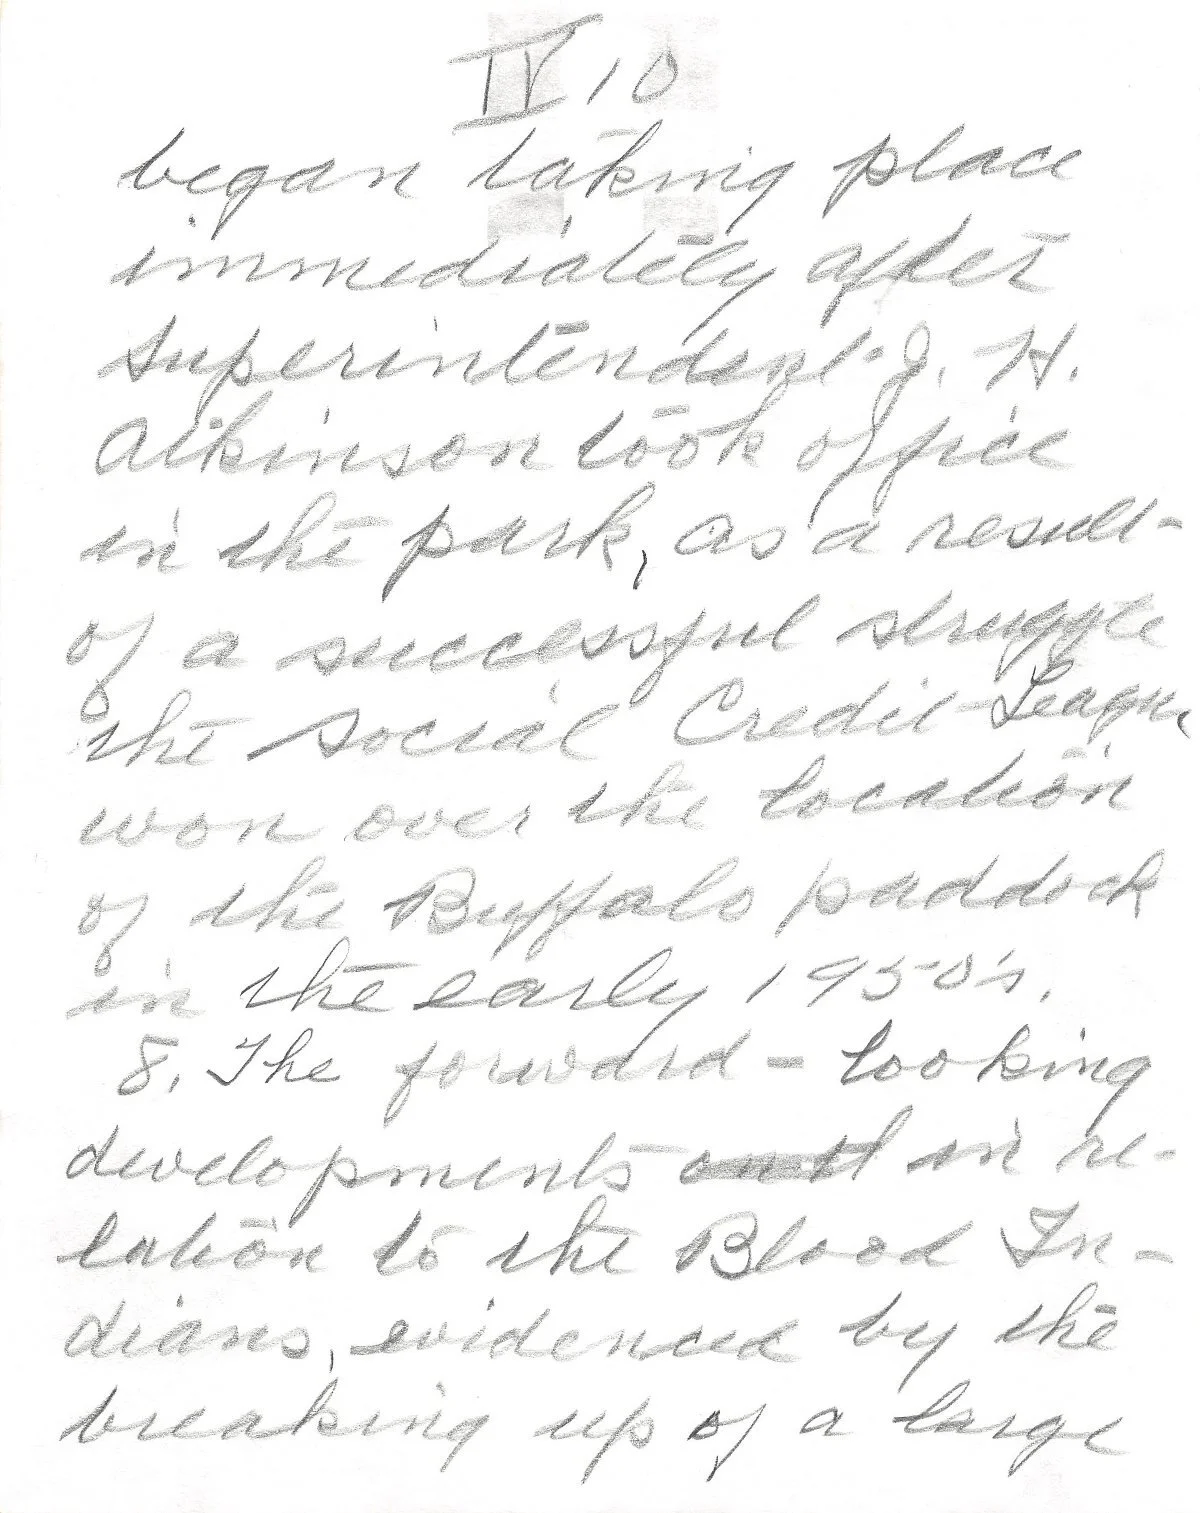 IV 10
began taking place
immediately after
Superintendent J. H.
Atkinson took office
in the park, as a result
of a successful struggle
the Social Credit League
won over the location
of the Buffalo paddock
in the early 1950's.
8. The forward-looking
developments in re-
lation to the Blood In-
dians, evidenced by the
breaking up of a large